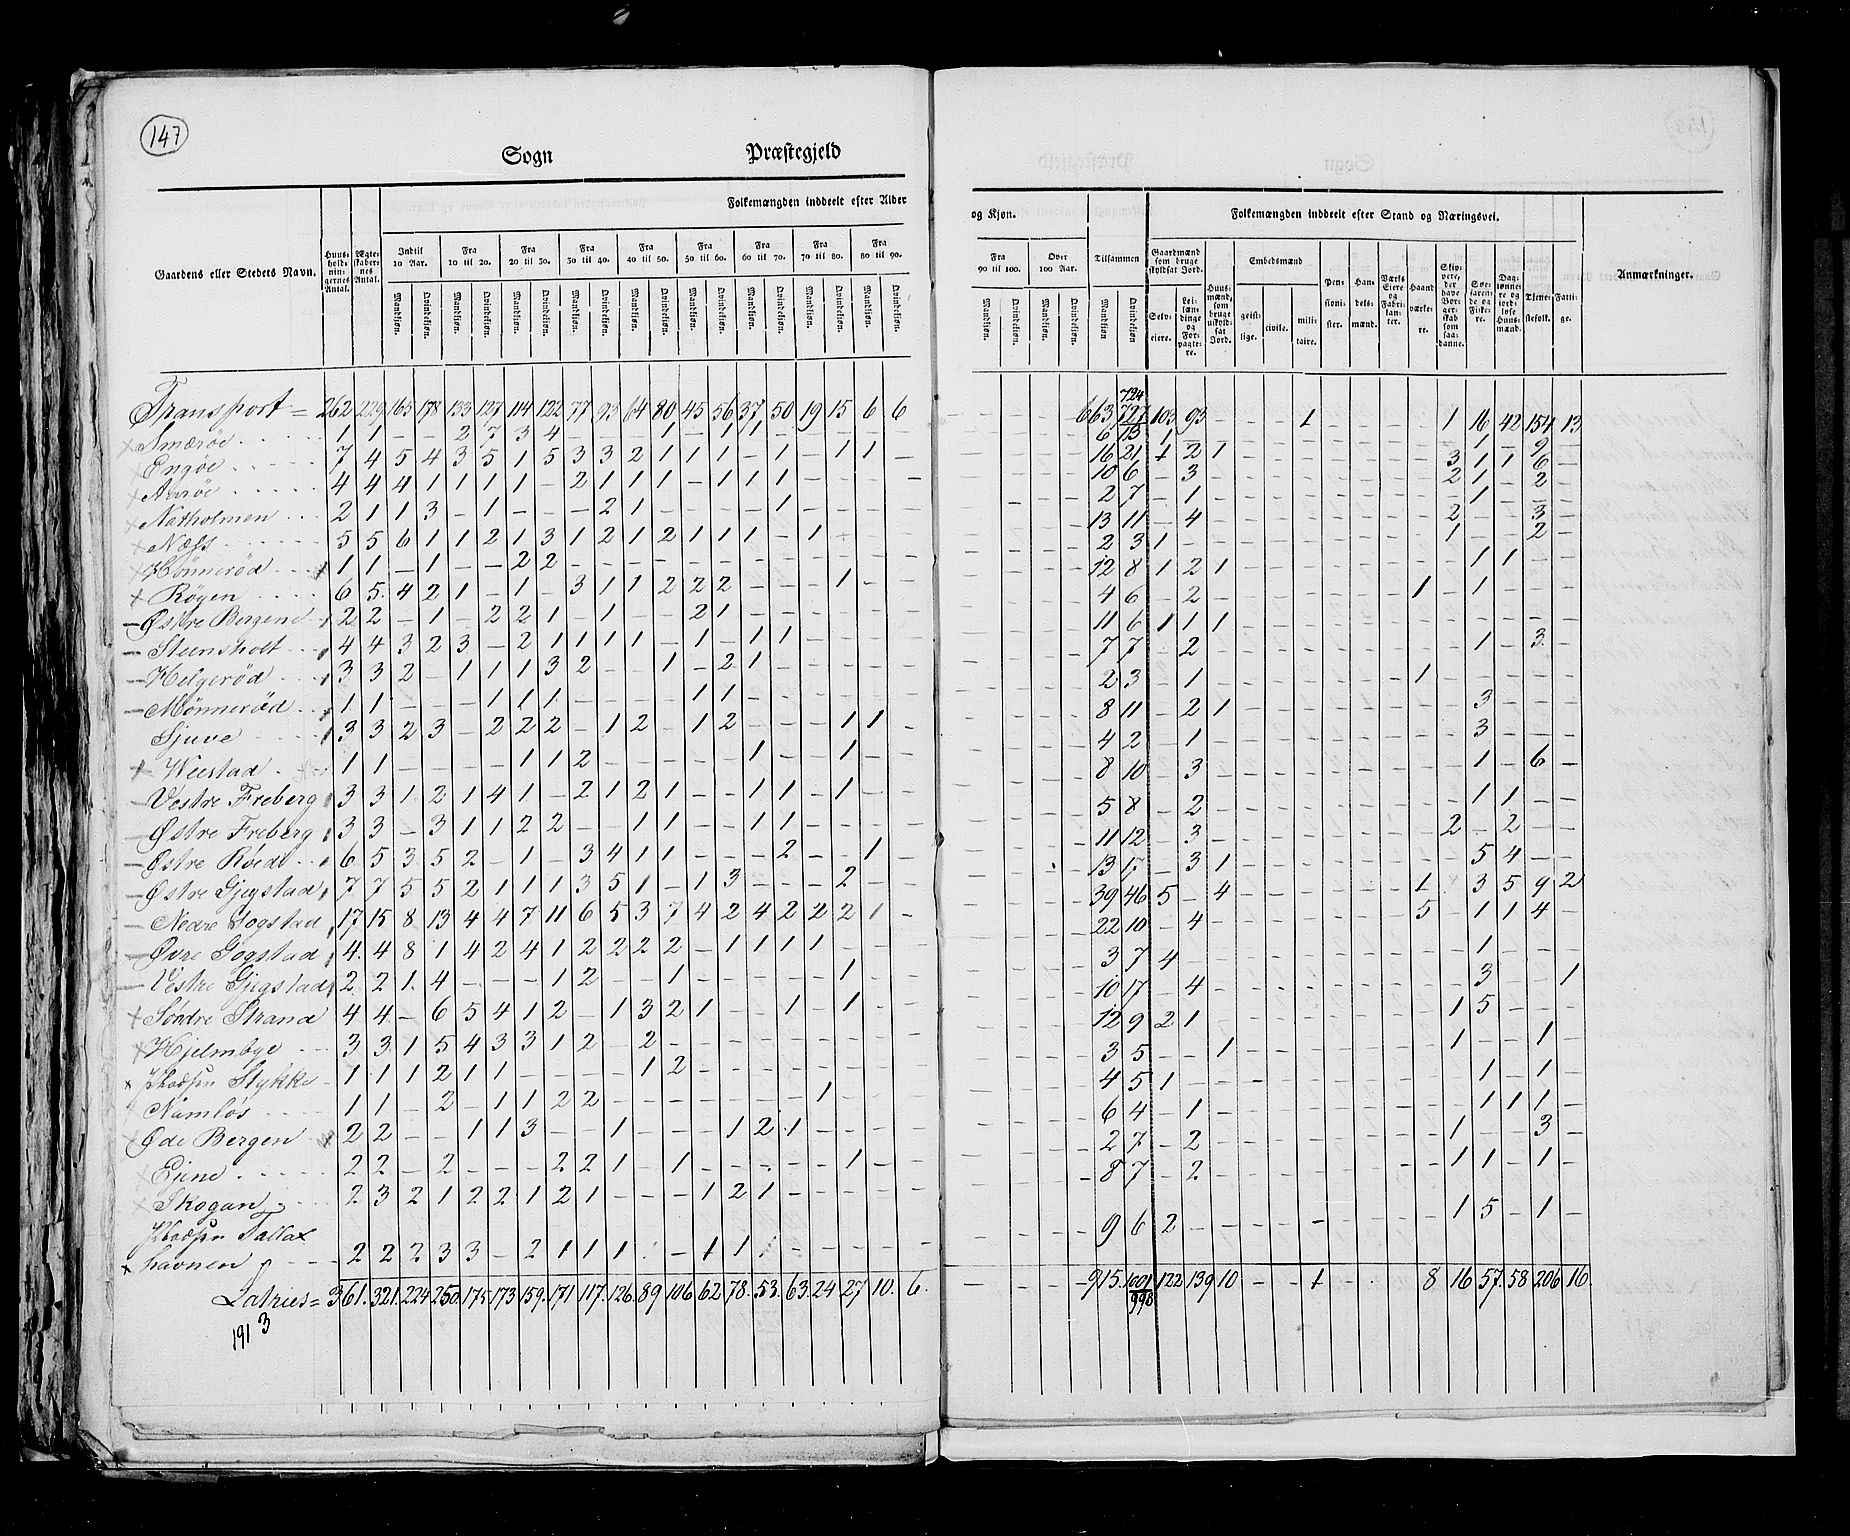 147
Sogn Præstegjeld
Gaardens eller Steders Navn.
Huus=hold=nin=gernes Antal.
Ægte=skaber=nes Antal.
Folkemængden inddeelt efter Alder
Indtil 10 Aar. Fra 10 til 20. Fra 20 til 30. Fra 30 til 40. Fra 40 til 50. Fra 50 til 60. Fra 60 til 70. Fra 70 til 80. Fra 80 til 90.
Mandkjøn. Qvindekjøn. Mandkjøn. Qvindekjøn. Mandkjøn. Qvindekjøn. Mandkjøn. Qvindekjøn. Mandkjøn. Qvindekjøn. Mandkjøn. Qvindekjøn. Mandkjøn. Qvindekjøn. Mandkjøn. Qvindekjøn. Mandkjøn. Qvindekjøn.
Transport = 262 229 165 178 133 127 114 122 77 93 64 80 45 56 37 50 19 15 6 6
Smærøe 1 1 - - 2 7 3 4 - - - 1 - 1 1 - - - - -
Engøe 7 4 5 4 3 5 1 5 3 3 2 1 1 1 - 1 - 1 1 -
Aurøe 4 4 4 1 1 1 1 - 2 1 1 1 - 1 1 1 - - - -
Natholmen 2 1 1 3 - 1 - - - 2 1 - - - - 1 - - - -
Næss 5 5 6 1 1 2 1 3 1 2 1 2 1 1 1 - 1 - - -
Hønnerød 1 1 - 1 - - 2 2 - - - - - - - - - - - -
Røyen 6 5 4 2 1 - 1 - 3 1 1 2 2 2 - - - 1 - -
Østre Bergene 2 2 - 1 - 2 2 1 - 1 - - 2 1 - - - - - -
Steensholt 4 4 3 2 3 - 2 1 1 1 1 - 1 - 1 1 - - - -
Helgerød 3 3 2 - 1 1 1 3 2 - - 1 - 2 1 - - - - -
Mønneröed 1 1 - - - 1 1 1 - - - - 1 1 - - - - - -
Sjuve 3 3 2 3 - 2 2 2 - 1 2 - 1 2 - - - 1 1 -
Weestad 1 1 - - - - 1 1 2 - - - - - 1 - - 1 - -
Vestre Freberg 3 3 1 2 1 4 1 - 2 1 2 1 - - 1 1 - 1 - -
Østre Freberg 3 3 - 3 1 1 2 2 - - 1 1 - - 1 1 - - - -
Østre Röedt 6 5 3 5 2 - 1 - 3 4 1 1 - - - 2 - - 1 -
Østre Gjegstad 7 7 5 5 2 1 1 1 3 5 1 - 1 3 - - - 2 - -
Nedre Gogstad 17 15 8 13 4 4 7 11 6 5 3 7 4 2 4 2 2 2 1 -
Øvre Gogstad 4 4 8 1 4 2 4 1 2 2 2 2 - 1 1 1 1 - - -
Vestre Gjegstad 2 2 1 4 - - - 1 2 - - 1 - - - - - 1 - -
Søndre Strand 4 4 - 6 5 4 1 2 - 1 3 2 1 - - 1 - 1 - -
Hjelmbye 3 3 1 5 4 3 3 1 2 - 2 - - - - - - - - -
Stykke 1 1 1 2 1 1 - - - - 1 2 - - - - - - - -
Namløs 1 1 - 2 - 1 1 2 2 - - - - - - - 1 - - -
Øde Bergen 2 2 - - 1 1 3 - - 1 - - - 1 2 1 - - - -
Eiene 2 2 - 2 - - - 2 2 1 - 1 - - - - - 1 - -
Skogan 2 3 2 1 2 2 1 2 1 - - - 1 2 1 - - - - -
havnen 2 2 2 3 3 - 2 1 1 1 - - 1 1 - - - - - -
Latries = 361. 321. 224 250. 175 173 159. 171 117. 126. 89 106 62 78. 53. 63. 24 27 10. 6.
1913
og Kjøn.
Fra 90 til 100. Over 100 Aar. Tilsammen
Mandkjøn. Qvindekjøn. Mandkjøn. Qvindekjøn. Mandkjøn Qvindekjøn
Folkemængden inddeelt efter Stand og Næringsvei.
Gaardmænd som bruge skyldsat Jord. Selv=eiere. Lei=lændinge og For=pagte=re.
Huus=mænd, som bruge uskyld=sat Jord.
Embedsmænd geist=lige. civile. mili=taire.
Pen=sioni=ster. Han=dels=mænd. Værks Eiere og Fabri=kan=ter. Haand=værke=re. Skip=pere, der have Bor=ger=skab som saa=danne. Søe=faren=de og Fiske=re. Dag=lønne=re og jord=løse Huus=mænd. Tjene=stefolk. Fatti=ge.
Anmærkninger.
724
663 727 103 93 - - - 1 - - - - 1 16 42 154 13
6 13 1
16 21 1 2 1
10 6 - 3
2 7 - 1
13 11 - 4
2 3 1
12 8 1 2 1
4 6 - 2
11 6 1 1 1
7 7 - 2
2 3 - 1
8 11 - 2 1
4 2 - 1
8 10 - 3
5 8 - 2
11 12 - 3
13 17 - 3 1
39 46 5 - 4
22 10 - 4
3 7 4
10 17 - 4
12 9 2 1
3 5 - - 1
4 5 1
6 4 - 1
2 7 - 2
8 7 - 2
9 6 2 - - - - - - - - - 1 5 - 1 -
915. 1001 122 139 10 - - 1 - - 8 16 57. 58 206 16
998